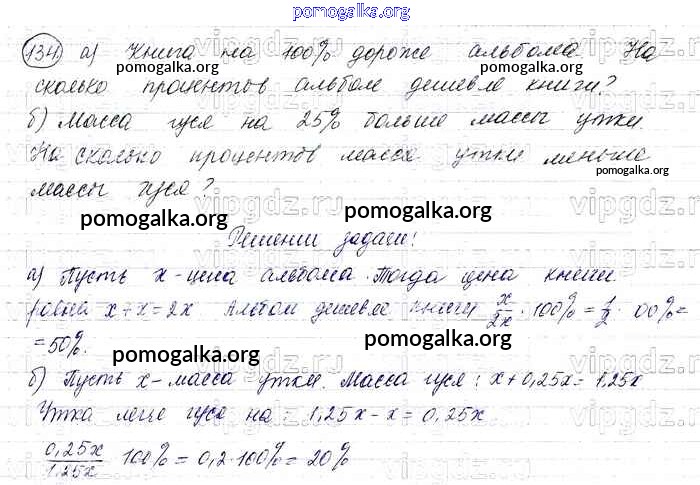 pomogalka.org
134. а) Книга на 100% дороже альбома. На
pomogalka.org pomogalka.org
сколько процентов альбом дешевле книги?
б) Масса гуся на 25% больше массы утки.
pomogalka.org pomogalka.org
На сколько процентов масса утки меньше
pomogalka.org
массы гуся?
pomogalka.org pomogalka.org
Решении задач:
а) Пусть x - цена альбома. Тогда цена книги
pomogalka.org
равна x + x = 2x Альбом дешевле книги x/2x · 100% = 1/2 · 00% =
= 50%.
pomogalka.org pomogalka.org
б) Пусть x - масса утки. Масса гуся: x + 0,25x = 1,25x
Утка легче гуся на = 1,25x - x = 0,25x
0,25x/1,25x 100% = 0,2 · 100% = 20%